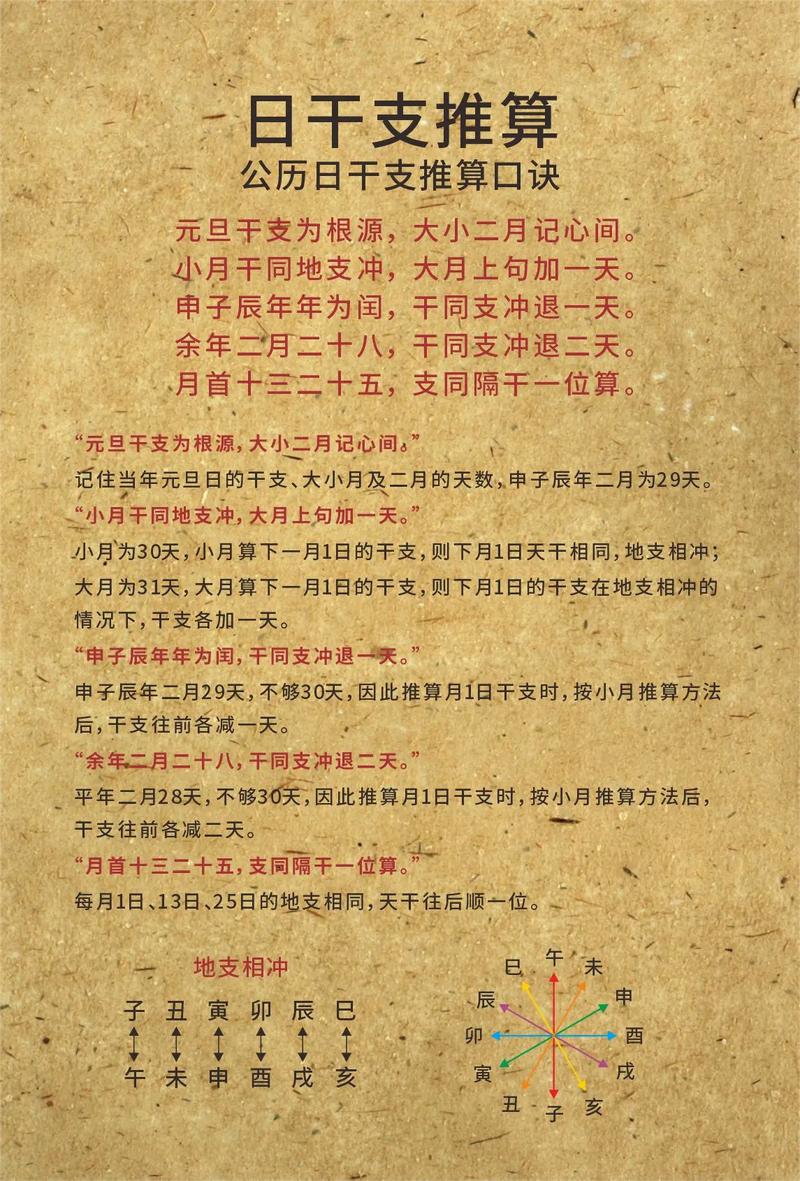 日干支推算
公历日干支推算口诀
元旦干支为根源，大小二月记心间。
小月干同地支冲，大月上句加一天。
申子辰年年为闰，干同支冲退一天。
余年二月二十八，干同支冲退二天。
月首十三二十五，支同隔干一位算。
“元旦干支为根源，大小二月记心间。”
记住当年元旦日的干支、大小月及二月的天数，申子辰年二月为29天。
“小月干同地支冲，大月上句加一天。”
小月为30天，小月算下一月1日的干支，则下月1日天干相同，地支相冲；
大月为31天，大月算下一月1日的干支，则下月1日的干支在地支相冲的
情况下，干支各加一天。
“申子辰年年为闰，干同支冲退一天。”
申子辰年二月29天，不够30天，因此推算月1日干支时，按小月推算方法
后，干支往前各减一天。
“余年二月二十八，干同支冲退二天。”
平年二月28天，不够30天，因此推算月1日干支时，按小月推算方法后，
干支往前各减二天。
“月首十三二十五，支同隔干一位算。”
每月1日、13日、25日的地支相同，天干往后顺一位。
地支相冲
子 丑 寅 卯 辰 巳
午 未 申 酉 戌 亥
午
巳 未
辰 申
卯 酉
寅 戌
丑 亥
子